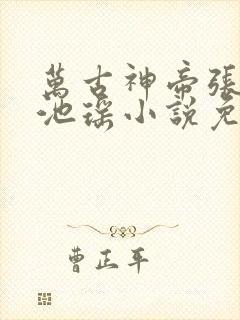 萬古神帝張
池瑤小說免
曹正年